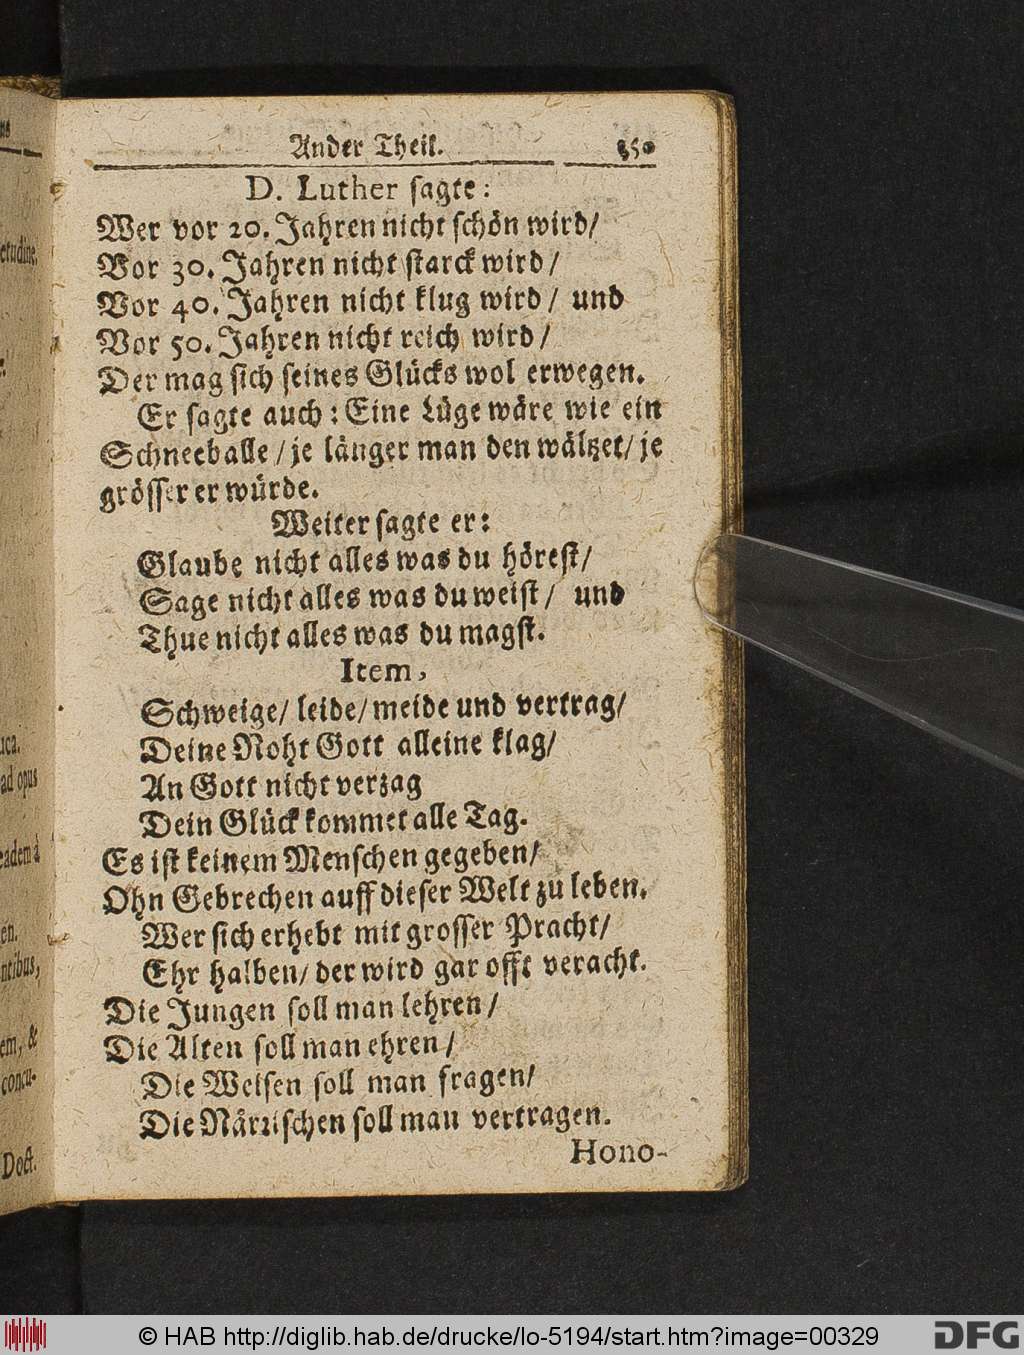 Ander Theil.
D. Luther sagte:
Wer vor 20. Jahren nicht schön wird/
Vor 30. Jahren nicht starck wird/
Vor 40. Jahren nicht klug wird/ und
Vor 50. Jahren nicht reich wird/
Der mag sich seines Glücks wol erwegen.
Er sagte auch: Eine Lüge wäre wie ein
Schneeballe/ je länger man den wältzet/ je
grösser er würde.
Weiter sagte er:
Glaube nicht alles was du hörest/
Sage nicht alles was du weist/ und
Thue nicht alles was du magst.
Item,
Schweige/ leide/ meide und vertrag/
Deine Noht Gott alleine klag/
An Gott nicht verzag
Dein Glück kommet alle Tag.
Es ist keinem Menschen gegeben/
Ohn Gebrechen auff dieser Welt zu leben.
Wer sich erhebt mit grosser Pracht/
Ehr halben/ der wird gar offt veracht.
Die Jungen soll man lehren/
Die Alten soll man ehren/
Die Weisen soll man fragen/
Die Närrischen soll man vertragen.
Hono-
etudine,
uca.
ad opus
eadem à
en.
ntibus,
em, &
concu-
Doct.
© HAB http://diglib.hab.de/drucke/lo-5194/start.htm?image=00329
DFG